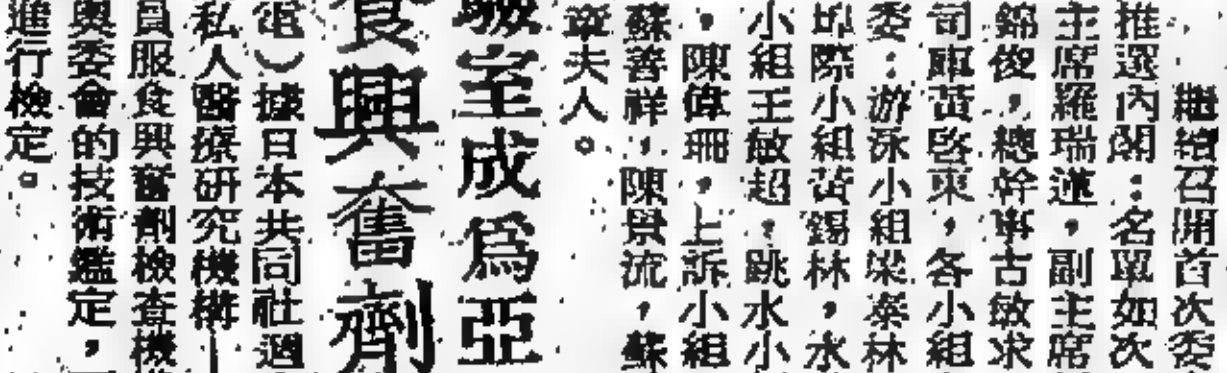 繼續召開首次委
推選內閣：名單如次
主席羅瑞遂，副主席
錦俊，總幹事古敏求
司庫黃啓東，各小組
委：游泳小組梁燊林
埠際小組黃錫林，水
小組王敏超，跳水小
，陳偉珊，上訴小組
蘇善祥，陳景流，蘇
章夫人。
驗室成爲亞
食興奮劑
電）據日本共同社週
私人醫療研究機構—
員服食興奮劑檢查機
奧委會的技術鑑定，
進行檢定。